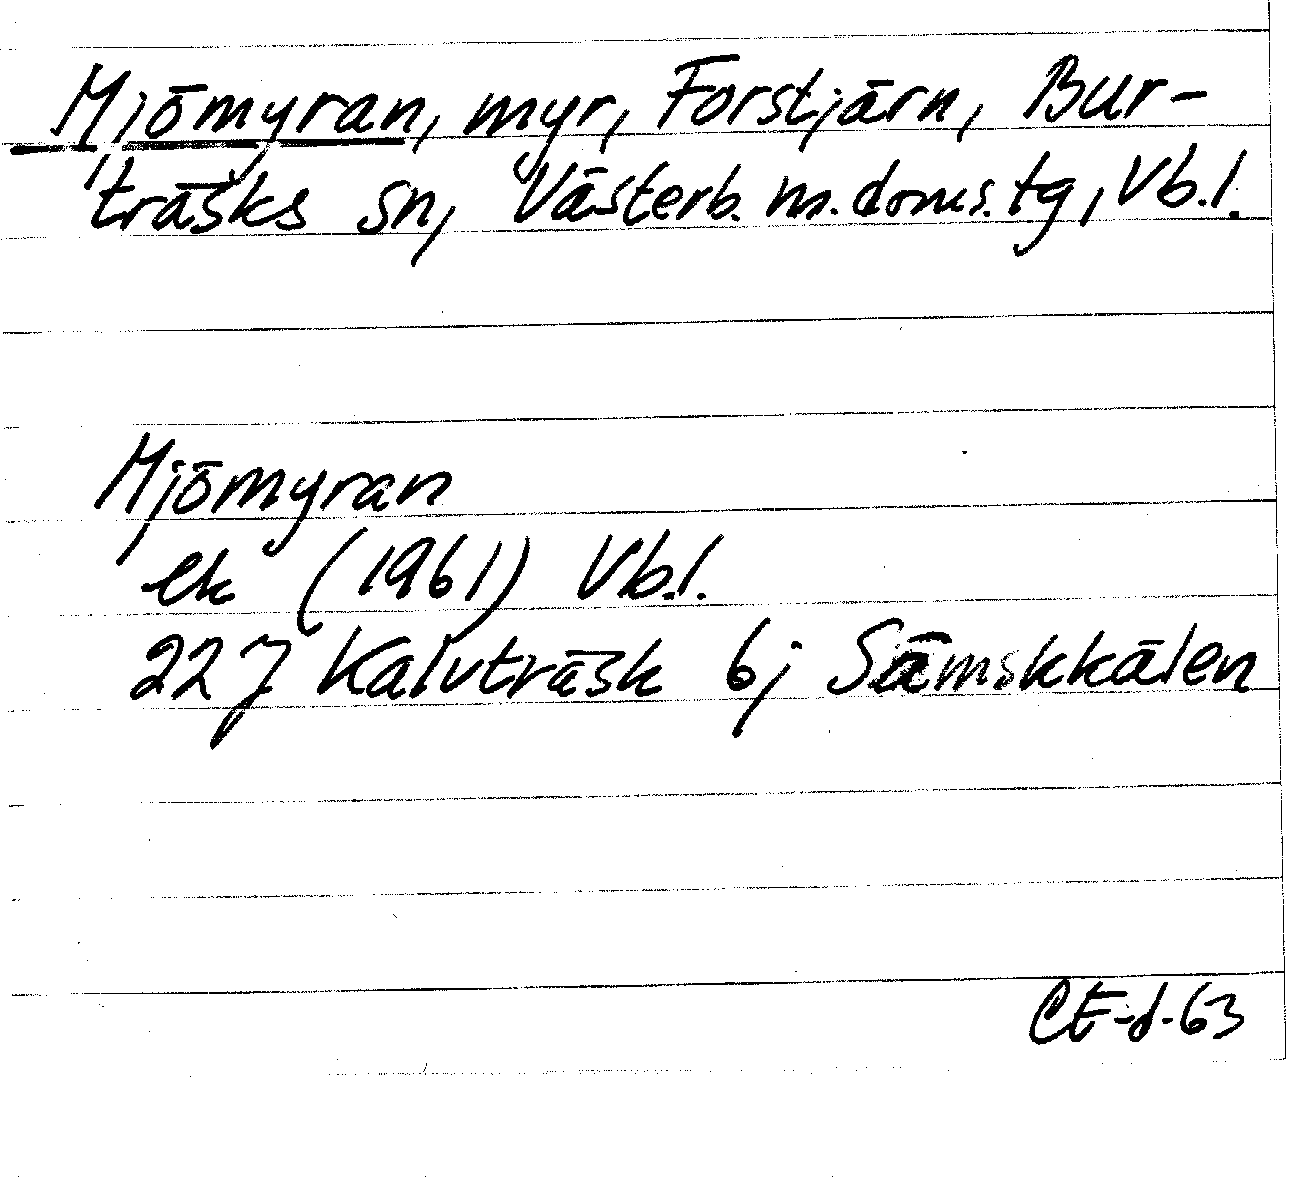 Mjömyran, myr, Forstjärn, Bur-
träsks sn, Västerb. m. doms. tg, Vb.l.
Mjömyran
ek (1961) Vb.l.
22J Kalvträsk 6j Sämskkälen
CE-d-63